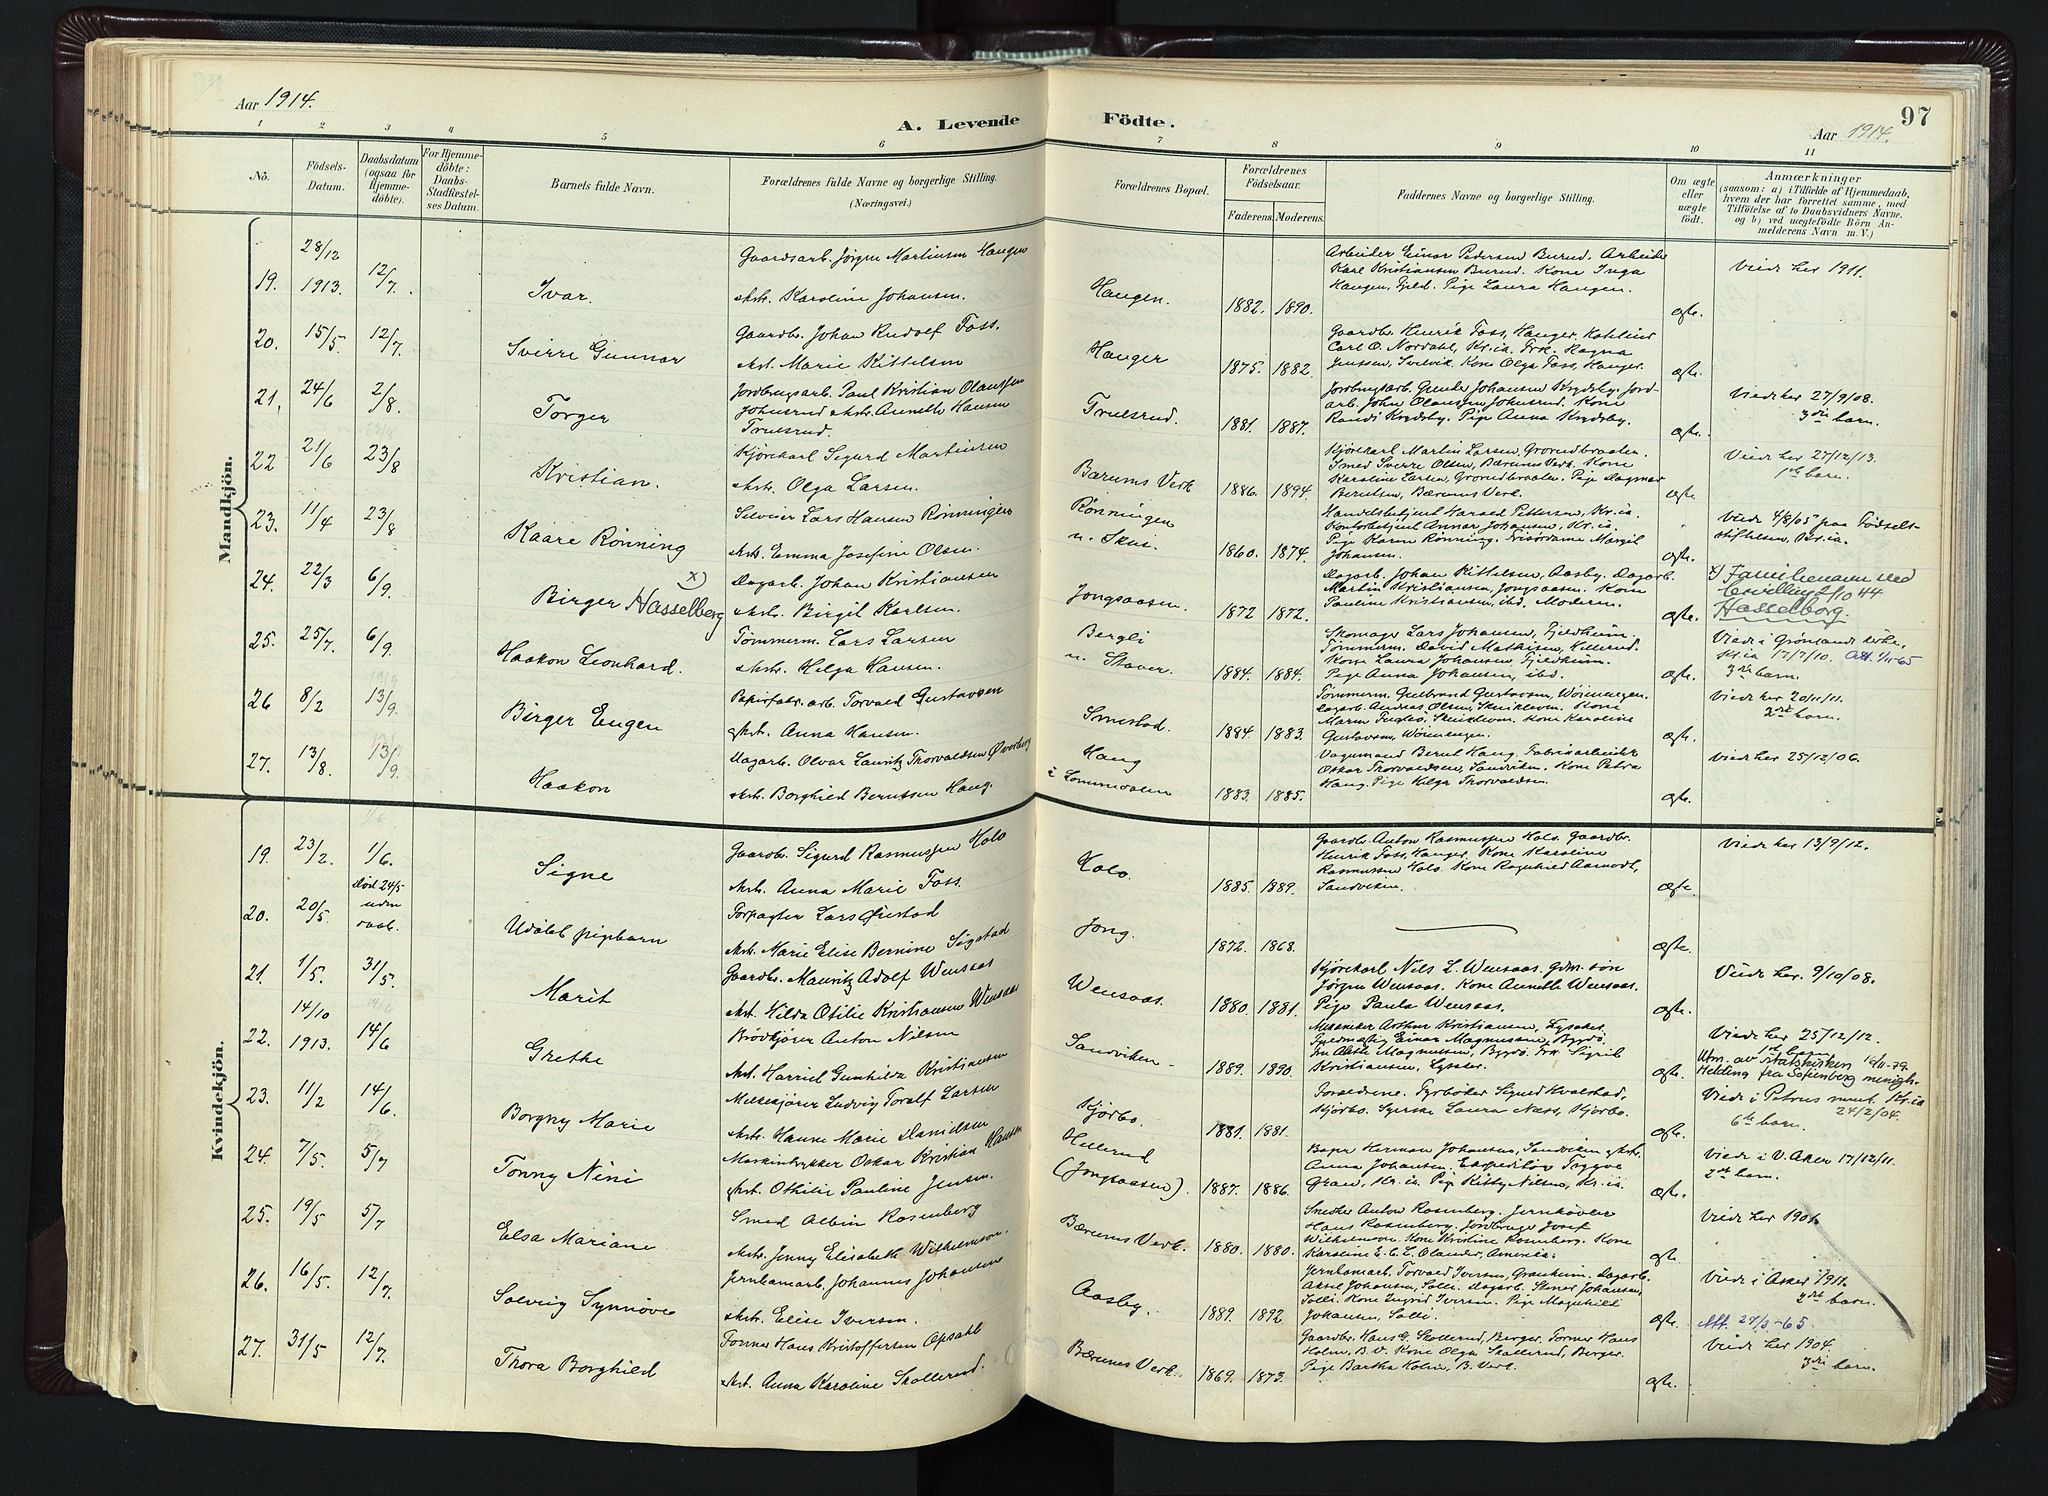 Aar 1914.
A. Levende Födte.
97
Aar 1914.
1 2 3 4 5 6 7 8 9 10 11
No.
Födsels-
Datum.
Daabsdatum
(ogsaa for
Hjemme-
döbte).
For Hjemme-
döbte:
Daabs-
Stadfæstel-
ses Datum.
Barnets fulde Navn.
Forældrenes fulde Navne og borgerlige Stilling.
(Næringsvei.)
Forældrenes Bopæl.
Forældrenes
Födselsaar.
Faderens. Moderens.
Faddernes Navne og borgerlige Stilling.
Om ægte
eller
uægte
födt.
Anmærkninger
(saasom: a) i Tilfælde af Hjemmedaab,
hvem der har forrettet samme, med
Tilföielse af to Daabsvidners Navne.
og b) ved uægtefödte Börn An-
melderens Navn m. V.)
Mandkjön.
19. 28/12 1913. 12/7. Ivar.
Gaardsarb. Jörgen Martinsen Haugen
Hst. Karoline Johansen.
Haugen. 1882. 1890.
Arbeider Einar Pedersen Burud. Arbeider
Karl Kristiansen Burud. Kone Inga
Haugen, Fjeld. Pige Laura Haugen.
ægte. Viede her 1911.
20. 15/5. 12/7. Sverre Gunnar
Gaardbr. Johan Rudolf Foss.
Hst. Marie Kittelsen
Hauger 1875. 1882.
Gaardbr. Henrik Foss, Hauger.
Carl O. Nordahl, Kr.ia. Frk. Ragna
Jenssen, Svelvik. Kone Olga Foss, Hauger.
ægte.
21. 24/6 2/8. Torger
Jordbrugsarb. Paul Kristian Olaussen
Johnsrud Hst. Annette Hansen
Truelsrud.
Truelsrud. 1881. 1887.
Jordbrugsarb. Gunder Johansen Krydsby. Jord-
arb. John Olaussen Johnsrud. Kone
Randi Krydsby. Pige Anna Krydsby.
ægte. Viede her 27/9/08.
3die barn.
22 21/6 23/8 Kristian.
Kjörekarl Sigurd Martinsen
Hst. Olga Larsen.
Bærums Verk 1886. 1894.
Kjörekarl Martin Larsen, Grorudbraaten.
Smed Sverre Olsen, Bærums Verk. Kone
Karoline Larsen, Grorudbraaten. Pige Dagmar
Berntsen, Bærums Verk.
ægte Viede her 27/12/13.
1ste barn.
23. 11/4 23/8 Kaare Rønning
Selveier Lars Hansen Rønningen
Hst. Emma Josefine Olsen.
Rønningen
u. Skui. 1860. 1874.
Handelsbetjent Harald Pettersen, Kr.ia.
Kontorbetjent Annar Johansen, Kr.ia.
Pige Karen Rønning. Frisördame Margit
Johansen.
ægte. Viede 4/8/05 paa Födsels-
stiftelsen, Kr.ia.
24. 22/3 6/9. Birger Hasselberg x)
Dagarb. Johan Kristiansen
Hst. Birgit Karlsen.
Jongsaasen. 1872 1872.
Dagarb. Johan Kittelsen, Aasby. Dagarb.
Martin Kristiansen, Jongsaasen. Kone
Pauline Kristiansen, ibd. Moderen.
ægte. x) Familienavn ved
bevilling 2/10 44
Hasselberg.
25. 25/7. 6/9. Haakon Leonhard.
Tømmerm. Lars Larsen
Hst. Helga Hansen.
Bergli
u. Staver. 1884. 1884.
Skomager Lars Johansen, Fjeldheim.
Tømmerm. David Mathisen, Hillerud.
Kone Laura Johansen, Fjeldheim.
Pige Anna Johansen, ibd.
ægte. Viede i Grønlands kirke,
Kr.ia 17/7/10. Att. 1/11-65
3die barn.
26 8/2 13/9. Birger Eugen
Papirfabr. arb. Torvald Gustavsen
Hst. Anna Hansen.
Smestad. 1884. 1883.
Tømmerm. Gulbrand Gustavsen, Wøienengen.
Dagarb. Andreas Olsen, Skuikleven. Kone
Maren Fuglesø, Skuikleven. Kone Karoline
Gustavsen, Wøienengen.
ægte. Viede her 20/11/11.
2det barn.
27. 13/8. 13/9. Haakon
Dagarb. Olvar Lauritz Thorvaldsen Øverberg
Hst. Borghild Berntsen Haug.
Haug
i Lommedalen 1883. 1885.
Dagarb. Bernt Haug. Fabrikarbeider
Oskar Thorvaldsen, Sandviken. Kone Petra
Haug. Pige Helga Thorvaldsen.
ægte. Viede her 25/12/06.
Kvindekjön.
19. 23/2. 1/6. Signe
Gaardbr. Sigurd Rasmussen Holo
Hst. Anna Marie Foss.
Holo. 1885. 1889.
Gaardbr. Anton Rasmussen Holo. Gaardbr.
Henrik Foss, Hauger. Kone Karoline
Rasmussen Holo. Kone Ragnhild Aamodt,
Sandviken.
ægte. Viede her 13/9/12.
20. 20/5. død 24/5 uden daab. Udøbt pigebarn
Forpagter Lars Ørstad
Hst. Marie Elise Bernine Sigstad
Jong. 1872. 1868.
ægte.
21. 1/5. 31/5. Marit
Gaardbr. Mauritz Adolf Wensaas
Hst. Hilda Otilie Kristiansen Wensaas
Wensaas. 1880. 1881.
Kjörekarl Nils L. Wensaas. Gdm. søn
Jørgen Wensaas. Kone Annette Wensaas.
Pige Paula Wensaas.
ægte. Viede her 9/10/08.
22. 14/10 1913. 14/6 Grethe
Brödkjører Anton Nilsen
Hst. Harriet Gunhilda Kristiansen
Sandviken 1889. 1890.
Mekaniker Arthur Kristiansen, Lysaker.
Einar Magnussen, Bygdø.
Fru Magnussen, Bygdø. Frk. Sigrid
Kristiansen, Lysaker.
ægte. Viede her 25/12/12.
1ste barn
Utm. av statskirken 16/11-79.
Melding fra Sofienberg menigh.
23. 11/2 14/6. Borgny Marie
Melkekjører Ludvig Toralf Larsen
Hst. Hanne Marie Danielsen
Kjørbo. 1881. 1881.
Forældrene. Fyrbøter Sigurd Kvalstad,
Kjørbo. Syerske Laura Næss, Kjørbo.
ægte. Viede i Petrus men. Kr.ia
24/2/04.
6te barn.
24. 7/5. 5/7 Tonny Nini
Maskintrykker Oskar Kristian Hansen
Hst. Othilie Pauline Jensen.
Hellerud
(Jongsaasen). 1887. 1886.
Bager Herman Johansen, Sandviken Hst.
Anna Johansen. Expeditør Trygve
Gran, Kr.ia. Pige Kitty Nilsen, Kr.ia.
ægte. Viede i V. Aker 17/12/11.
2det barn.
25. 19/5 5/7. Elsa Mariane
Smed Albin Rosenberg
Hst. Jenny Elisabeth Wilhelmson.
Bærums Verk. 1880. 1880.
Smelter Anton Rosenberg. Jernhøvler
Hans Rosenberg. Jordbruger Josef
Wilhelmson. Kone Kristine Rosenberg. Kone
Karoline E. C. L. Olander, Amerika.
ægte. Viede her 1901.
26. 16/5. 12/7. Solveig Synnöve
Jernbanearb. Johannes Johansen
Hst. Elise Iversen.
Aasby. 1889. 1892.
Jernbanearb. Torvald Iversen, Granheim. Dagarb.
Aksel Johansen, Solli. Dagarb. Steinar Johansen,
Solli. Kone Ingrid Iversen. Pige Magnhild
Johansen, Solli.
ægte. Viede i Asker 1911.
2det barn.
Att. 27/3-65.
27. 31/5 12/7. Thora Borghild
Former Hans Kristoffersen Opsahl
Hst. Anna Karoline Skollerud.
Bærums Verk. 1869. 1873.
Gaardbr. Hans G. Skollerud, Berger. Former Hans
Holm, B. V. Kone Olga Skollerud, Berger.
Pige Bertha Holm, B. Verk.
ægte. Viede her 1904.
3die barn.